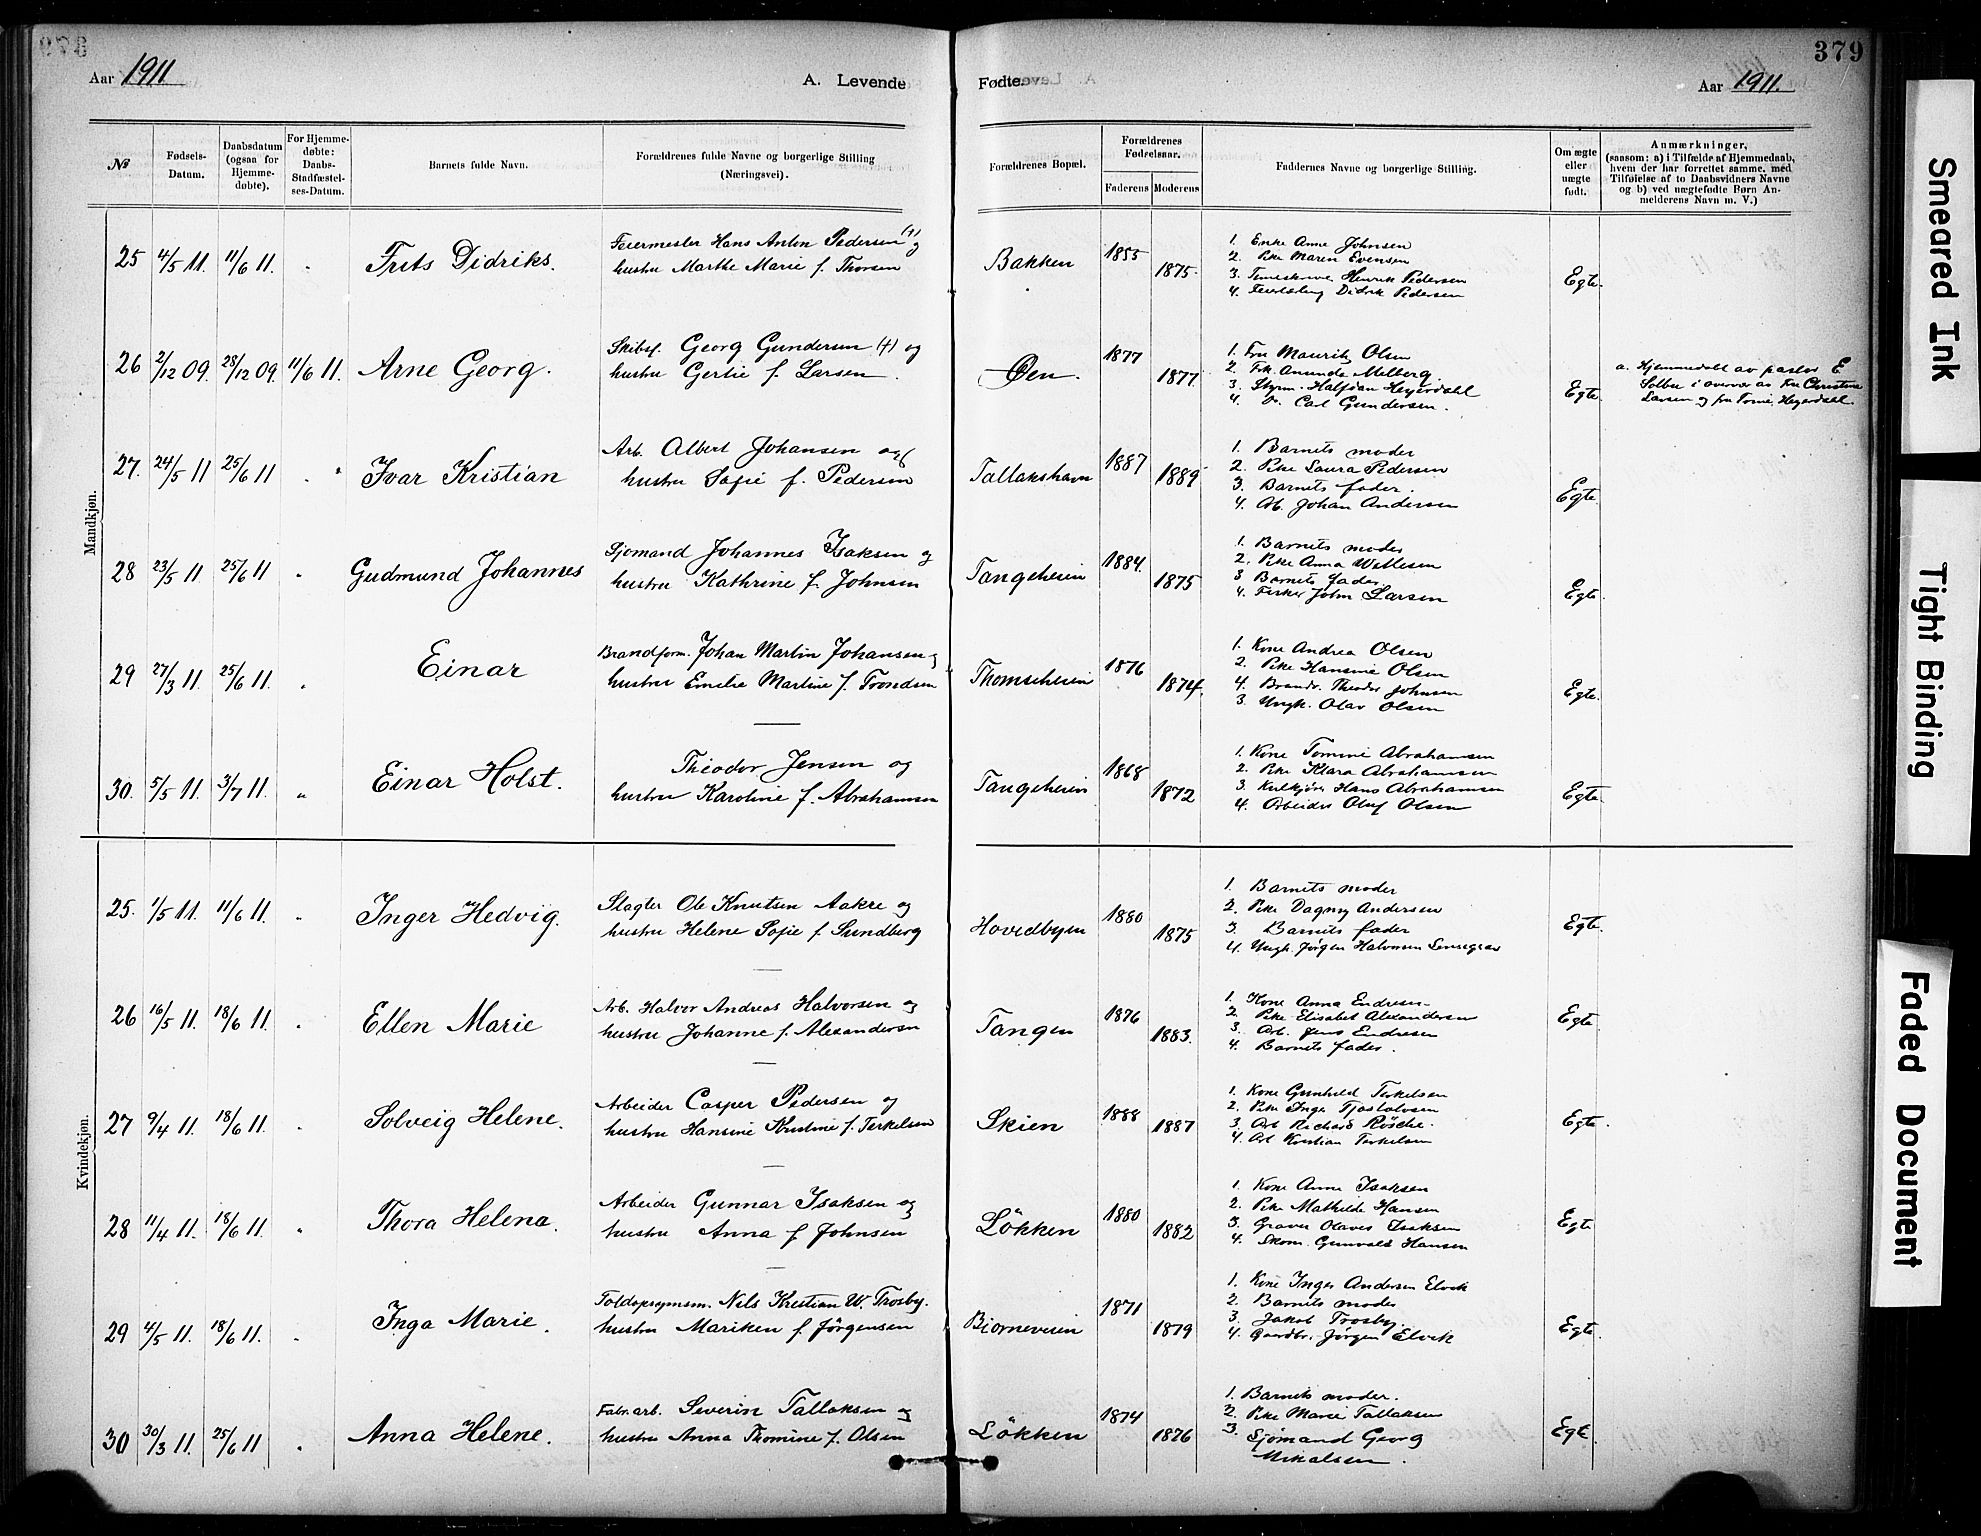 379
Aar 1911
A. Levende
Fødte.
Aar 1911.
№
Fødsels-Datum.
Daabsdatum (ogsaa for Hjemme-døbte).
For Hjemme-døbte: Daabs-Stadfæstel-ses-Datum.
Barnets fulde Navn.
Forældrenes fulde Navne og borgerlige Stilling (Næringsvei).
Forældrenes Bopæl.
Forældrenes Fødselsaar.
Faderens
Moderens
Faddernes Navne og borgerlige Stilling.
Om ægte eller uægte født.
Anmærkninger,
(saasom: a) i Tilfælde af Hjemmedaab, hvem der har forrettet samme, med Tilføielse af to Daabsvidners Navne og b) ved uægtefødte Børn An-melderens Navn m. V.)
Mandkjøn.
25 4/5 11. 11/6 11. "
Frits Didriks.
Feiermester Hans Anton Pedersen (+) og
hustru Marthe Marie f. Thorsen
Bakken
1855
1875
1. Enke Anne Johnsen
2. Pike Maren Evensen
3. Henrik Pedersen
4. Didrik Pedersen
Egte.
26 2/12 09. 28/12 09. 11/6 11.
Arne Georg.
Skibsf. Georg Gundersen (+) og
hustru Gertie f. Larsen.
Øen.
1877
1877
1. Fru Mauritz Olsen
2. Frk. Anunde Melberg
3. Styrm. Halfdan Heyerdahl
4. Do. Carl Gundersen.
Egte.
a. Hjemmedøbt av pastor E
Solbu i overvær av Fru Christine
Larsen og fru Tomie Heyerdahl.
27. 24/5 11 25/6 11 "
Ivar Kristian
Arb. Albert Johansen og
hustru Sofie f. Pedersen
Tallakshavn
1887
1889
1. Barnets moder
2. Pike Laura Pedersen
3. Barnets fader.
4. Arb. Johan Andersen
Egte
28 23/5 11 25/6 11 "
Gudmund Johannes
Sjømand Johannes Isaksen og
hustru Kathrine f. Johnsen
Tangeheien
1884.
1875
1. Barnets moder
2. Pike Anna Willesen
3 Barnets fader
4. Fisker John Larsen
Egte.
29 27/3 11. 25/6 11. "
Einar
Brandform. Johan Martin Johansen og
hustru Emelie Martine f. Trondsen
Thomseheien
1876
1874.
1. Kone Andrea Olsen
2. Pike Hansine Olsen
4. Brandk. Theodor Johnsen
3. Ungk. Olav Olsen
Egte.
30. 5/5 11. 3/7 11. "
Einar Holst.
Theodor Jensen og
hustru Karoline f. Abrahamsen
Tangeheien
1868
1872
1. Kone Tomine Abrahamsen
2. Pike Klara Abrahamsen
3. Kulkjører Hans Abrahamsen
4. Arbeider Oluf Olsen
Egte.
Kvindekjøn.
25. 1/5 11. 11/6 11. "
Inger Hedvig.
Slagter Ole Knutsen Aakre og
hustru Helene Sofie f. Sundberg
Hovedbyen
1880
1875
1. Barnets moder
2. Pike Dagny Andersen
3. Barnets fader
4. Ungk. Jørgen Halvorsen
Egte.
26 16/5 11. 18/6 11. "
Ellen Marie
Arb. Halvor Andreas Halvorsen og
hustru Johanne f. Alexandersen
Tangen
1876
1883.
1. Kone Anna Endresen
2. Pike Elisabet Alexandersen
3. Arb. Jens Endresen
4. Barnets fader.
Egte
27 9/4 11 18/6 11. "
Solveig Helene.
Arbeider Casper Pedersen og
hustru Hansine Kristine f. Terkelsen
Skien
1888
1887
1. Kone Gunhild Terkelsen
2. Pike Inga Tjostolvsen
3. Arb Richard Røsche.
4. Arb Kristian Terkelsen
Egte.
28 11/4 11. 18/6 11. "
Thora Helena.
Arbeider Gunnar Isaksen og
hustru Anna f. Johnsen
Løkken
1880
1882
1. Kone Anne Isaksen
2. Pike Mathilde Hansen
3. Graver Olaves Isaksen
4. Skom. Gunvald Hansen
Egte
29 4/5 11. 18/6 11. "
Inga Marie.
Toldopsynsm. Nils Kristian W. Trosby.
hustru Mariken f. Jørgensen
Bjørneveien
1871
1879
1. Kone Inger Andersen Elvik
2. Barnets moder
3. Jakob Trosby.
4. Gaardbr. Jørgen Elvik
Egte.
30 30/3 11. 25/6 11 "
Anna Helene.
Fabr.arb. Severin Tallaksen og
hustru Anna Thomine f. Olsen
Løkken
1874
1876
1. Barnets moder.
2. Pike Marie Tallaksen
3. Sjømand Georg
Mikalsen.
Egte.
Smeared Ink
Tight Binding
Faded Document